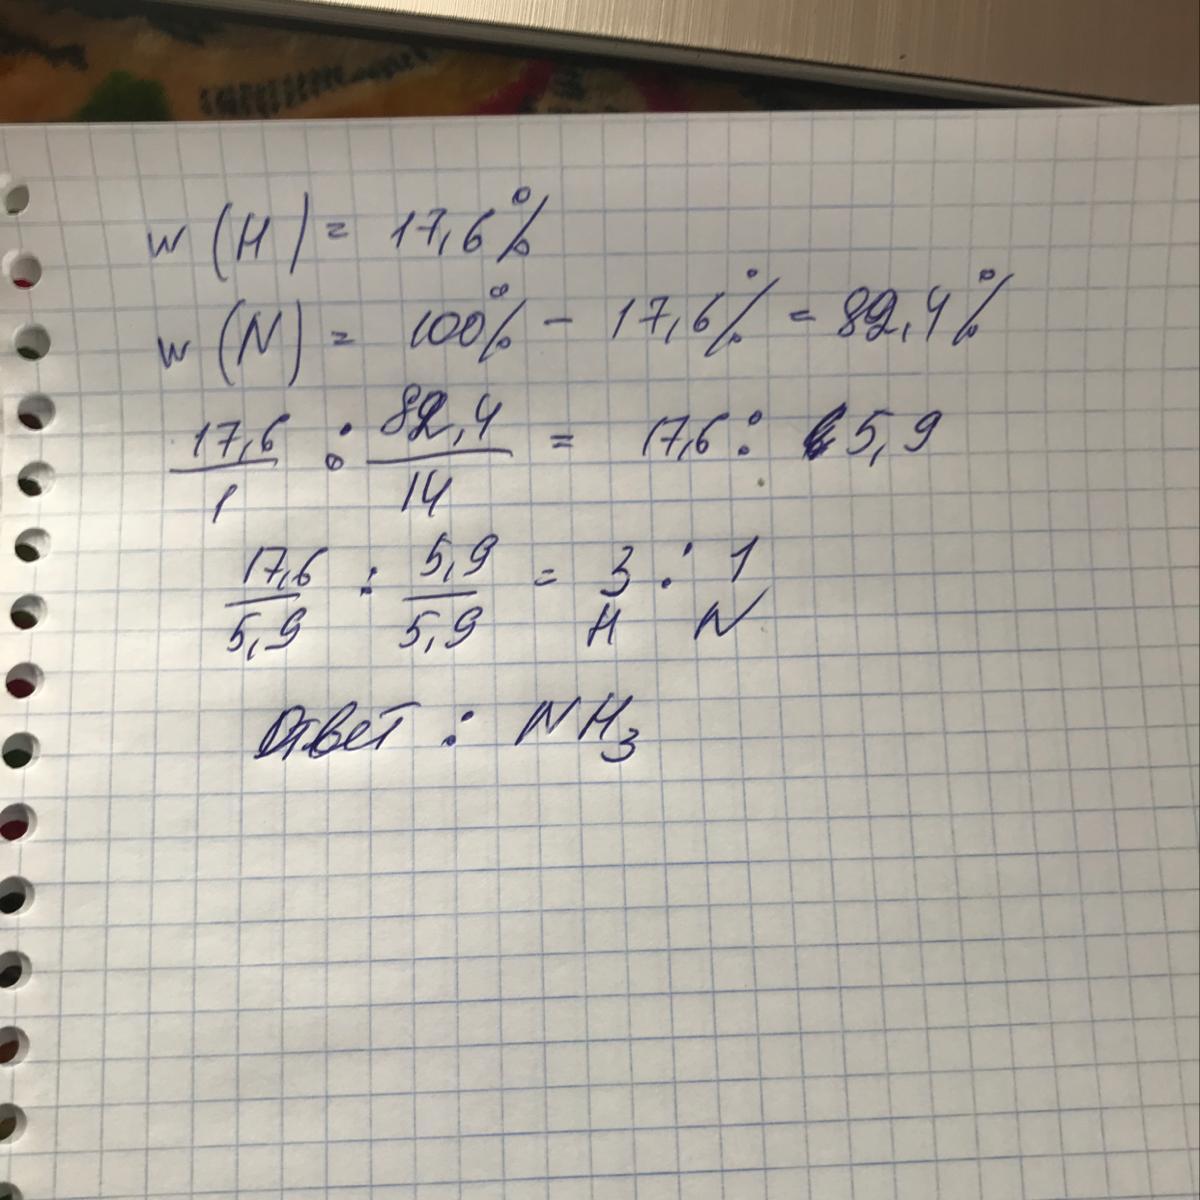 w(H) = 17,6%
w(N) = 100% - 17,6% = 82,4%
17,6/1 : 82,4/14 = 17,6 : 5,9
17,6/5,9 : 5,9/5,9 = 3 : 1
H N
Ответ : NH₃